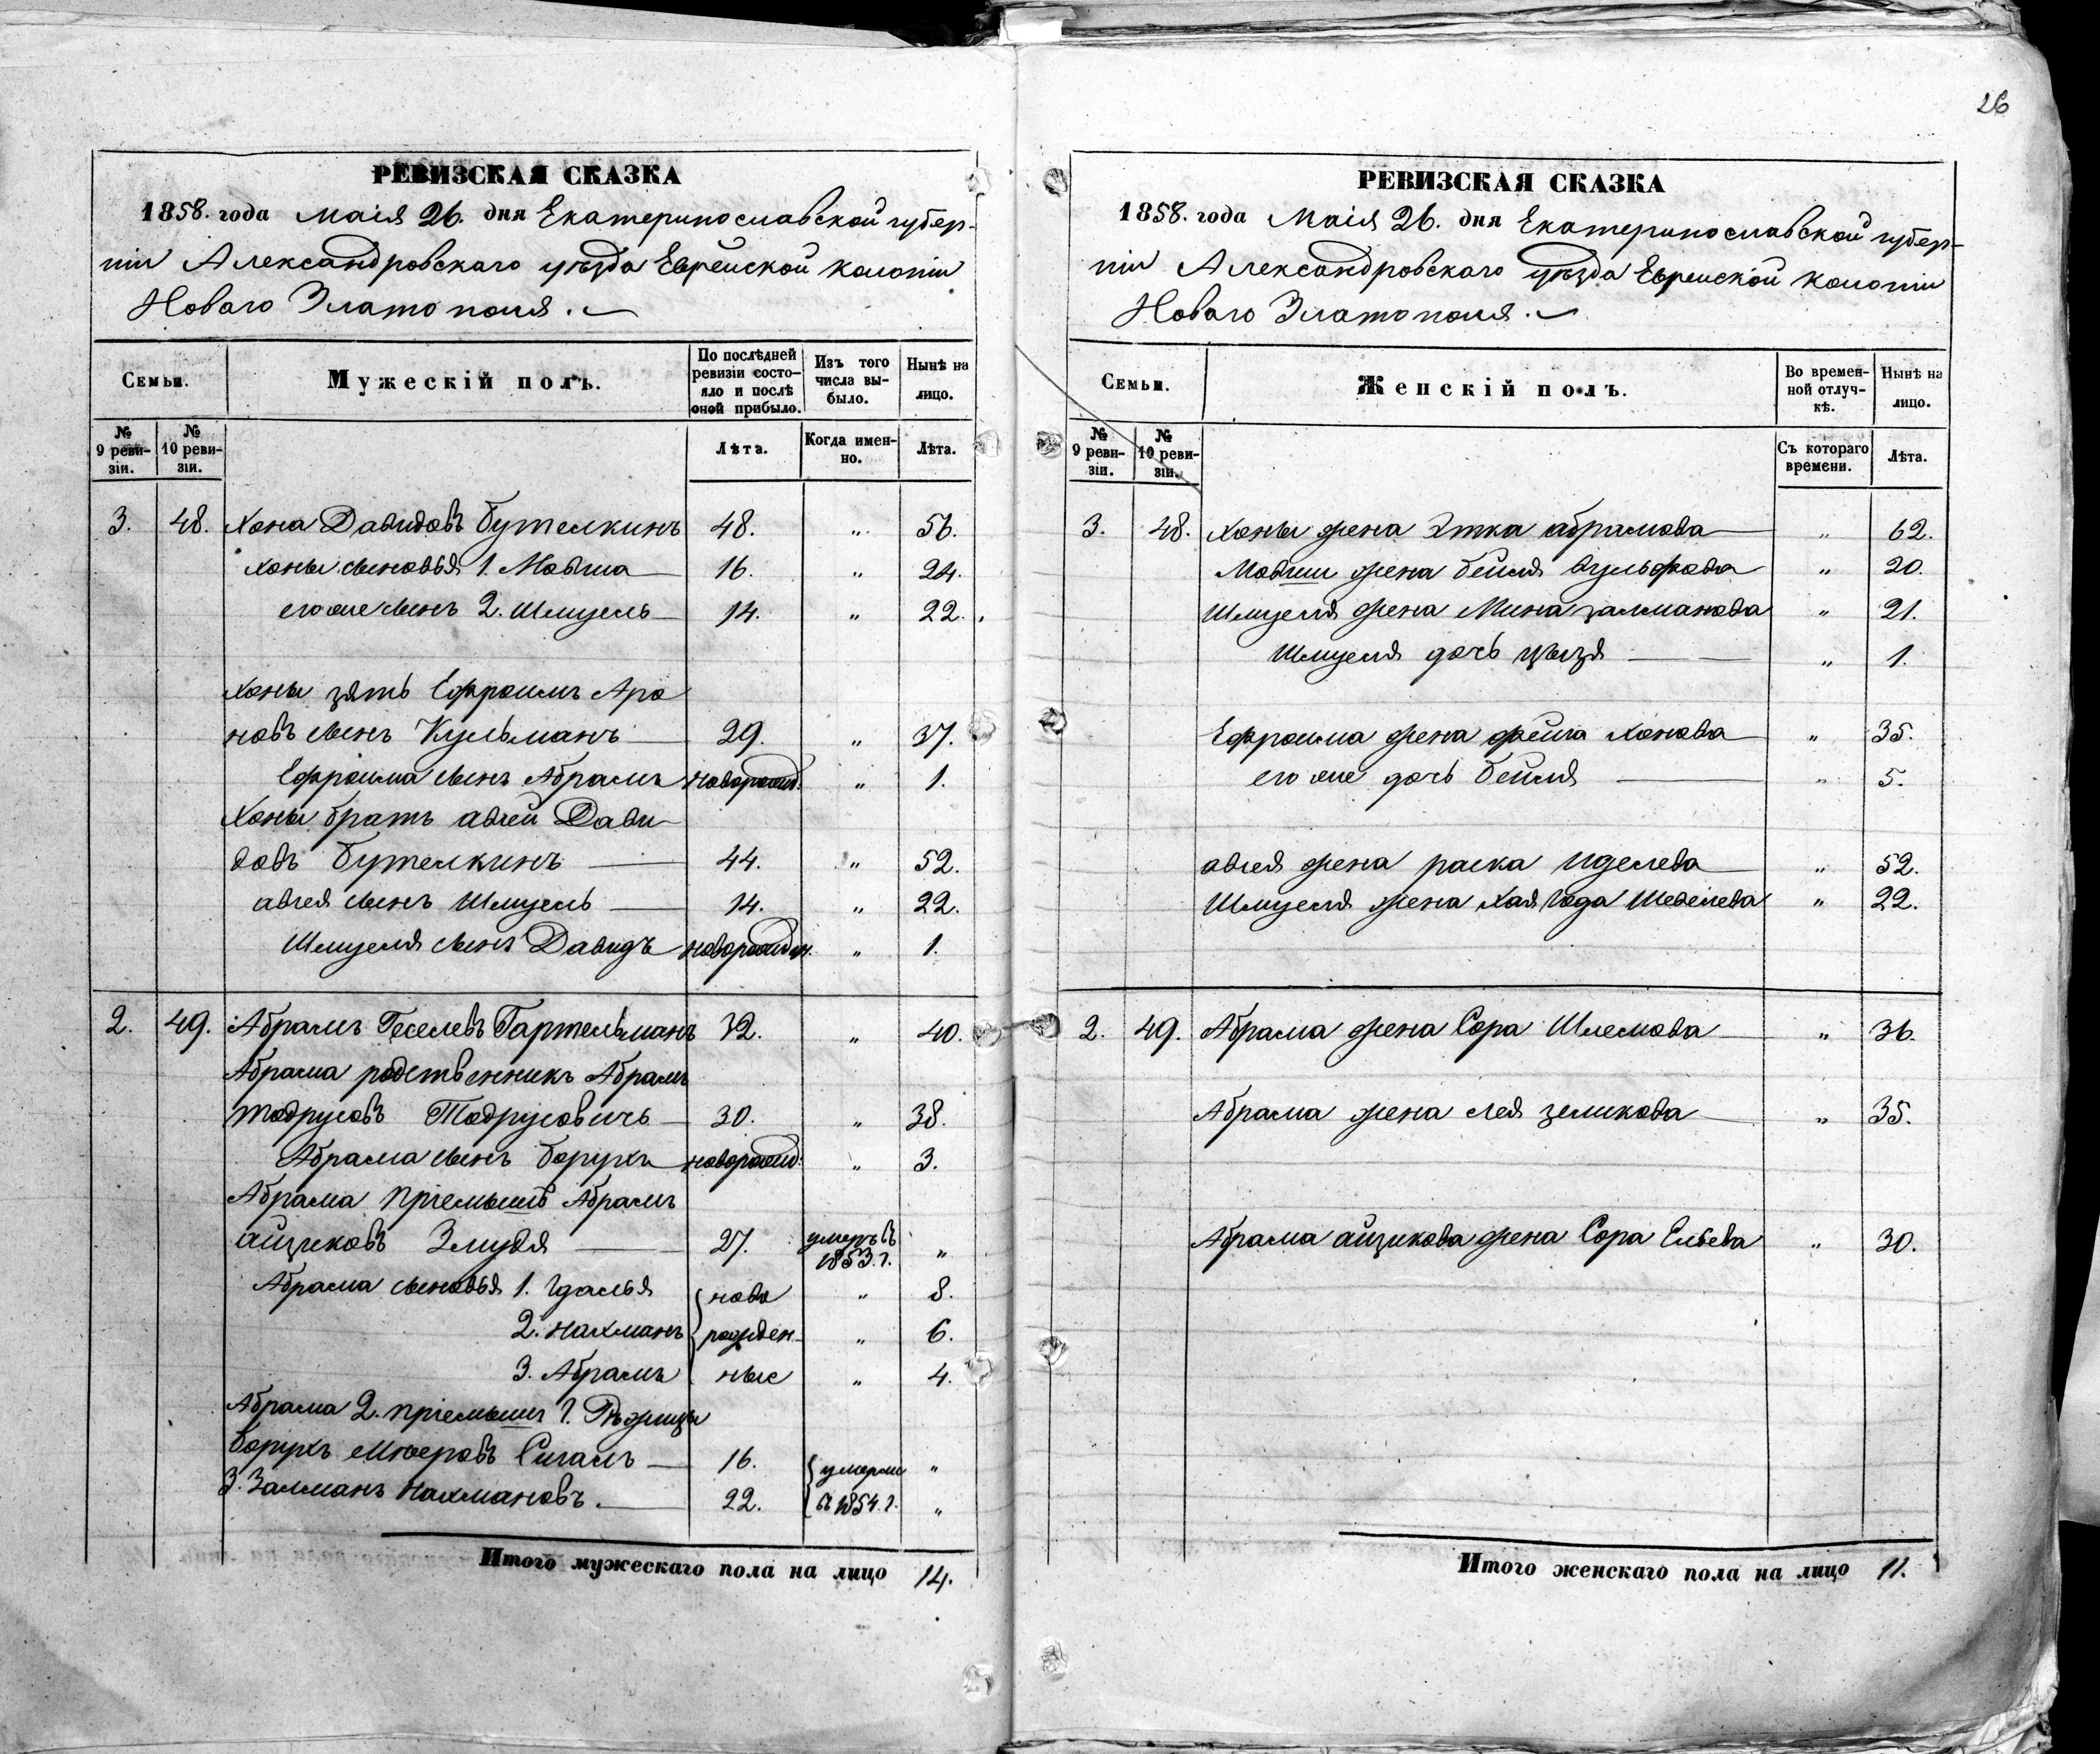 26
РЕВИЗСКАЯ СКАЗКА
1858. года Маія 26. дня Екатеринославской губер-
ніи Александровскаго уѣзда Еврейской колоніи
Новаго Златополя.
Семьи.
Мужескій полъ.
По послѣдней ревизіи состо-яло и послѣ оной прибыло.
Изъ того числа вы-было.
Нынѣ на лицо.
№ 9 реви-зіи.
№ 10 реви-зіи.
Лѣта.
Когда имен-но.
Лѣта.
3. 48. Хона Давидовъ Бутелкинъ 48. „ 56.
Хоны сыновья 1. Мовша 16. „ 24.
его же сынъ 2. Шмуель 14. „ 22.
Хоны зять Ефроимъ Аро
новъ сынъ Кульманъ 29. „ 37.
Ефроима сынъ Абрамъ новорожд. „ 1.
Хоны братъ Давы
довъ Бутелкинъ 44. „ 52.
сынъ Шмуель 14. „ 22.
Шмуеля сынъ Давидъ новорожден. „ 1.
2. 49. Абрамъ Геселевъ Гартельманъ 32. „ 40.
Абрама родственникъ Абрамъ
Тодрусовъ Тодрусовичъ 30. „ 38.
Абрама сынъ Борухъ новорожд: „ 3.
Абрама пріемышъ Абрамъ
Айзиковъ Змудя 27. умеръ въ 1853. г. „
Абрама сыновья 1. Гдалья ново „ 8.
2. Нахманъ рожден- „ 6.
3. Абрамъ ные „ 4.
Абрама 2. пріемышъ
Борухъ Мееровъ Сигалъ 16. умерли „
3. Залманъ Нахмановъ. 22. въ 1854. г. „
Итого мужескаго пола на лицо 14.
РЕВИЗСКАЯ СКАЗКА
1858. года Маія 26. дня Екатеринославской губер-
ніи Александровскаго уѣзда Еврейской колоніи
Новаго Златополя.
Семьи.
Женскій полъ.
Во времен-ной отлуч-кѣ.
Нынѣ на лицо.
№ 9 реви-зіи.
№ 10 реви-зіи.
Съ котораго времени.
Лѣта.
3. 48. Хоны жена Этка Абрамова „ 62.
Мовши жена Бейля Вульфова „ 20.
Шмуеля жена Мина Залманова „ 21.
Шмуеля дочь „ 1.
Ефроима жена Фейга Хонова „ 35.
его же дочь Бейля „ 5.
жена Раска Иделева „ 52.
Шмуеля жена Хая Года Шевелева „ 22.
2. 49. Абрама жена Сора Шлемова „ 36.
Абрама жена Лея Зеликова „ 35.
Абрама Айзикова жена Сора Ельева „ 30.
Итого женскаго пола на лицо 11.